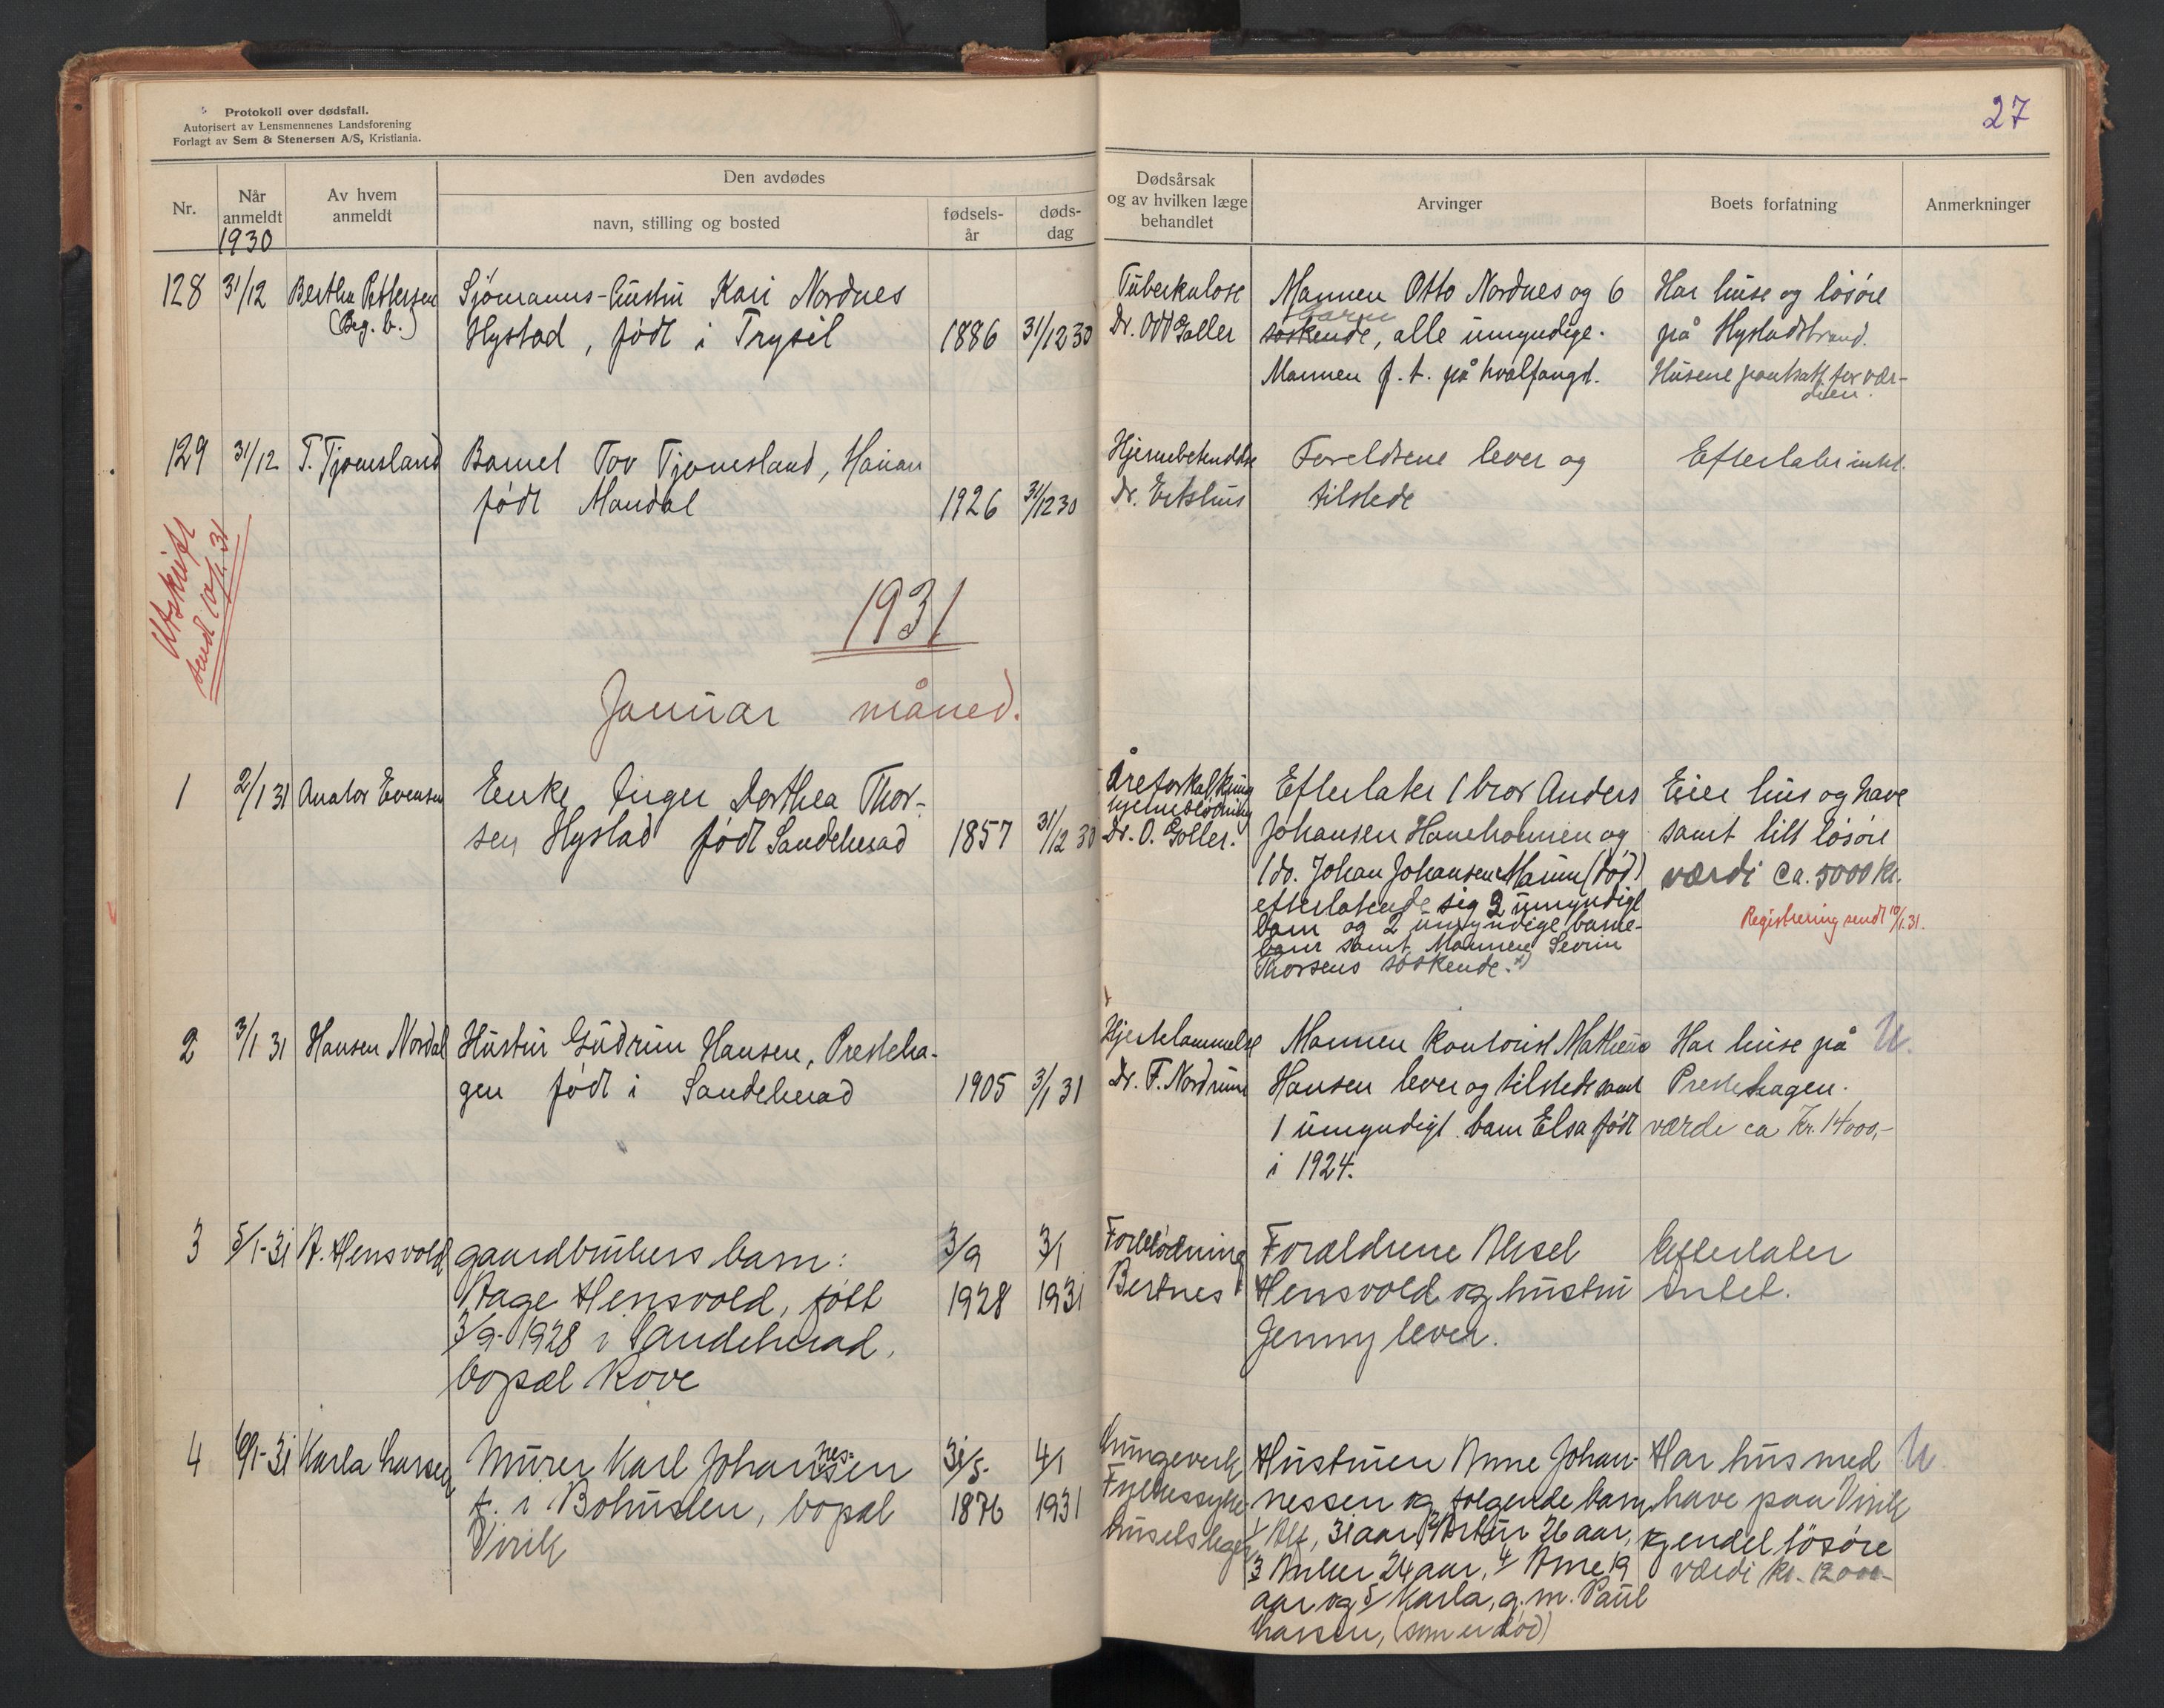 Protokoll over dødsfall.
Autorisert av Lensmennenes Landsforening
Forlagt av Sem & Stenersen A/S, Kristiania.
27
Nr.
Når anmeldt
1930
Av hvem anmeldt
Den avdødes
navn, stilling og bosted
fødsels-år
døds-dag
Dødsårsak og av hvilken læge behandlet
Arvinger
Boets forfatning
Anmerkninger
128 31/12 Bertha Pettersen
(Beg. b.)
Sjömanns-hustru Kari Nordnes
Hystad, född i Trysil
1886 31/12 30
Tuberkulose
Dr. Odd Goller
Mannen Otto Nordnes og 6
barn
søskende, alle umyndige.
Mannen f. t. på hvalfangst.
Har huse og lösöre
på Hystadstrand.
Husene pantsatt for vær-
dien.
129 31/12 T. Tjomsland
Barnet Tov Tjomsland, Hauan
född Mandal
1926 31/12 30
Hjernebetendelse
Dr.
Foreldrene lever og
tilstede
Efterlater intet.
Utskrift
sendt 10/1. 31
1931
Januar måned.
1 2/1 31 Anator Evensen
Enke Inger Dorthea Thor-
sen Hystad född Sandeherad
1857 31/12 30
Åreforkalkning
hjerneblödning
Dr. O. Goller.
Efterlater 1 bror Anders
Johansen Haneholmen og
1 do. Johan Johansen Marum (död)
efterlatende sig 2 umyndige
barn og 2 umyndige barne-
barn samt Mannen Severin
Thorsens søskende. x)
Eier hus og have
samt litt lösöre
værdi ca. 5000 kr.
Registrering sendt 10/1. 31.
2 3/1 31 Hansen Nordal
Hustru Gudrun Hansen, Presteha-
gen född i Sandeherad
1905 3/1 31
Hjertelammelse
Dr. F. Nordrum
Mannen kontorist Mathias
Hansen lever og tilstede samt
1 umyndigt barn Elsa född
i 1924.
Har huse på
Prestehagen.
værdi ca Kr. 14000,-
U.
3 5/1-31 A. Hensvold
gaardbrukers barn:
Aage Hensvold, född
3/9-1928 i Sandeherad,
bopæl Rove
3/9
1928
3/1
1931
Forblödning
Bertnes
Forældrene Aksel
Hensvold og hustru
Jenny lever.
Efterlater
intet.
4 6/1-31 Karla Larsen
Murer Karl Johannessen
f. i Bohuslen, bopæl
Virik
31/5-
1876
4/1
1931
Lungeverk
Fylkessyke-
husets lege
Hustruen Anne Johan-
nessen og følgende barn
1/ Alf, 31 aar, 2/ Artur 26 aar,
3/ Anker 24 aar, 4/ Arne 19
aar og 5/ Karla, g. m. Paul
Larsen, (som er död)
Har hus med
have paa Virik
og endel lösöre
værdi kr. 12000-
U.